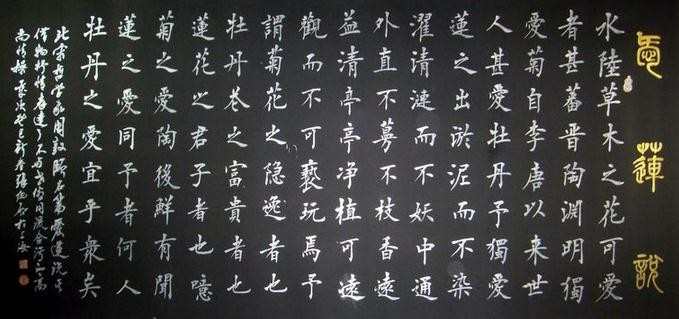 愛蓮說
水陸草木之花可愛
者甚蕃晉陶淵明獨
愛菊自李唐以來世
人甚愛牡丹予獨愛
蓮之出淤泥而不染
濯清漣而不妖中通
外直不蔓不枝香遠
益清亭亭净植可遠
觀而不可褻玩焉予
謂菊花之隱逸者也
牡丹花之富貴者也
蓮花之君子者也噫
菊之愛陶後鮮有聞
蓮之愛同予者何人
牡丹之愛宜乎衆矣
北宋哲學家周敦頤名篇愛蓮說
借物抒情
高情操歲次癸巳新春